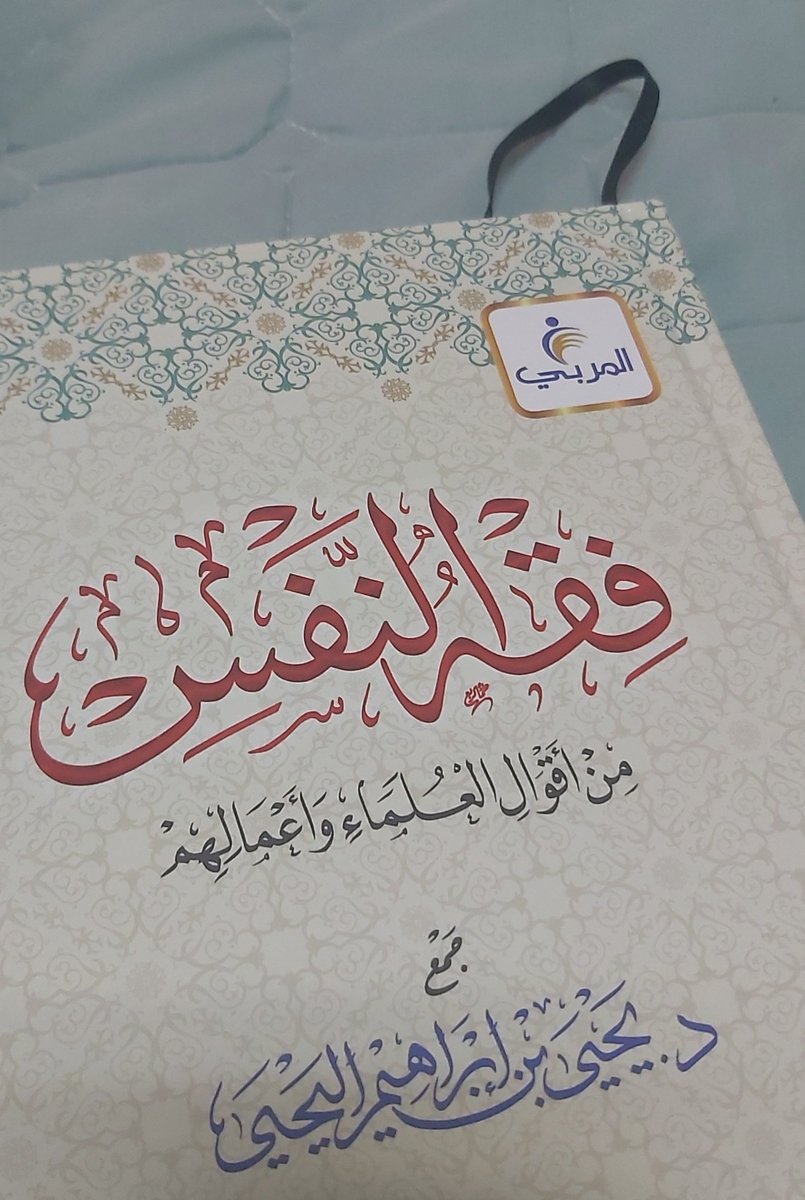 المربي
فِقْهُ النَّفْسِ
مِنْ أَقْوَالِ الْعُلَمَاءِ وَأَعْمَالِهِمْ
جَمْعُ
د. يَحْيَى بْنِ إِبْرَاهِيمَ الْيَحْيَى